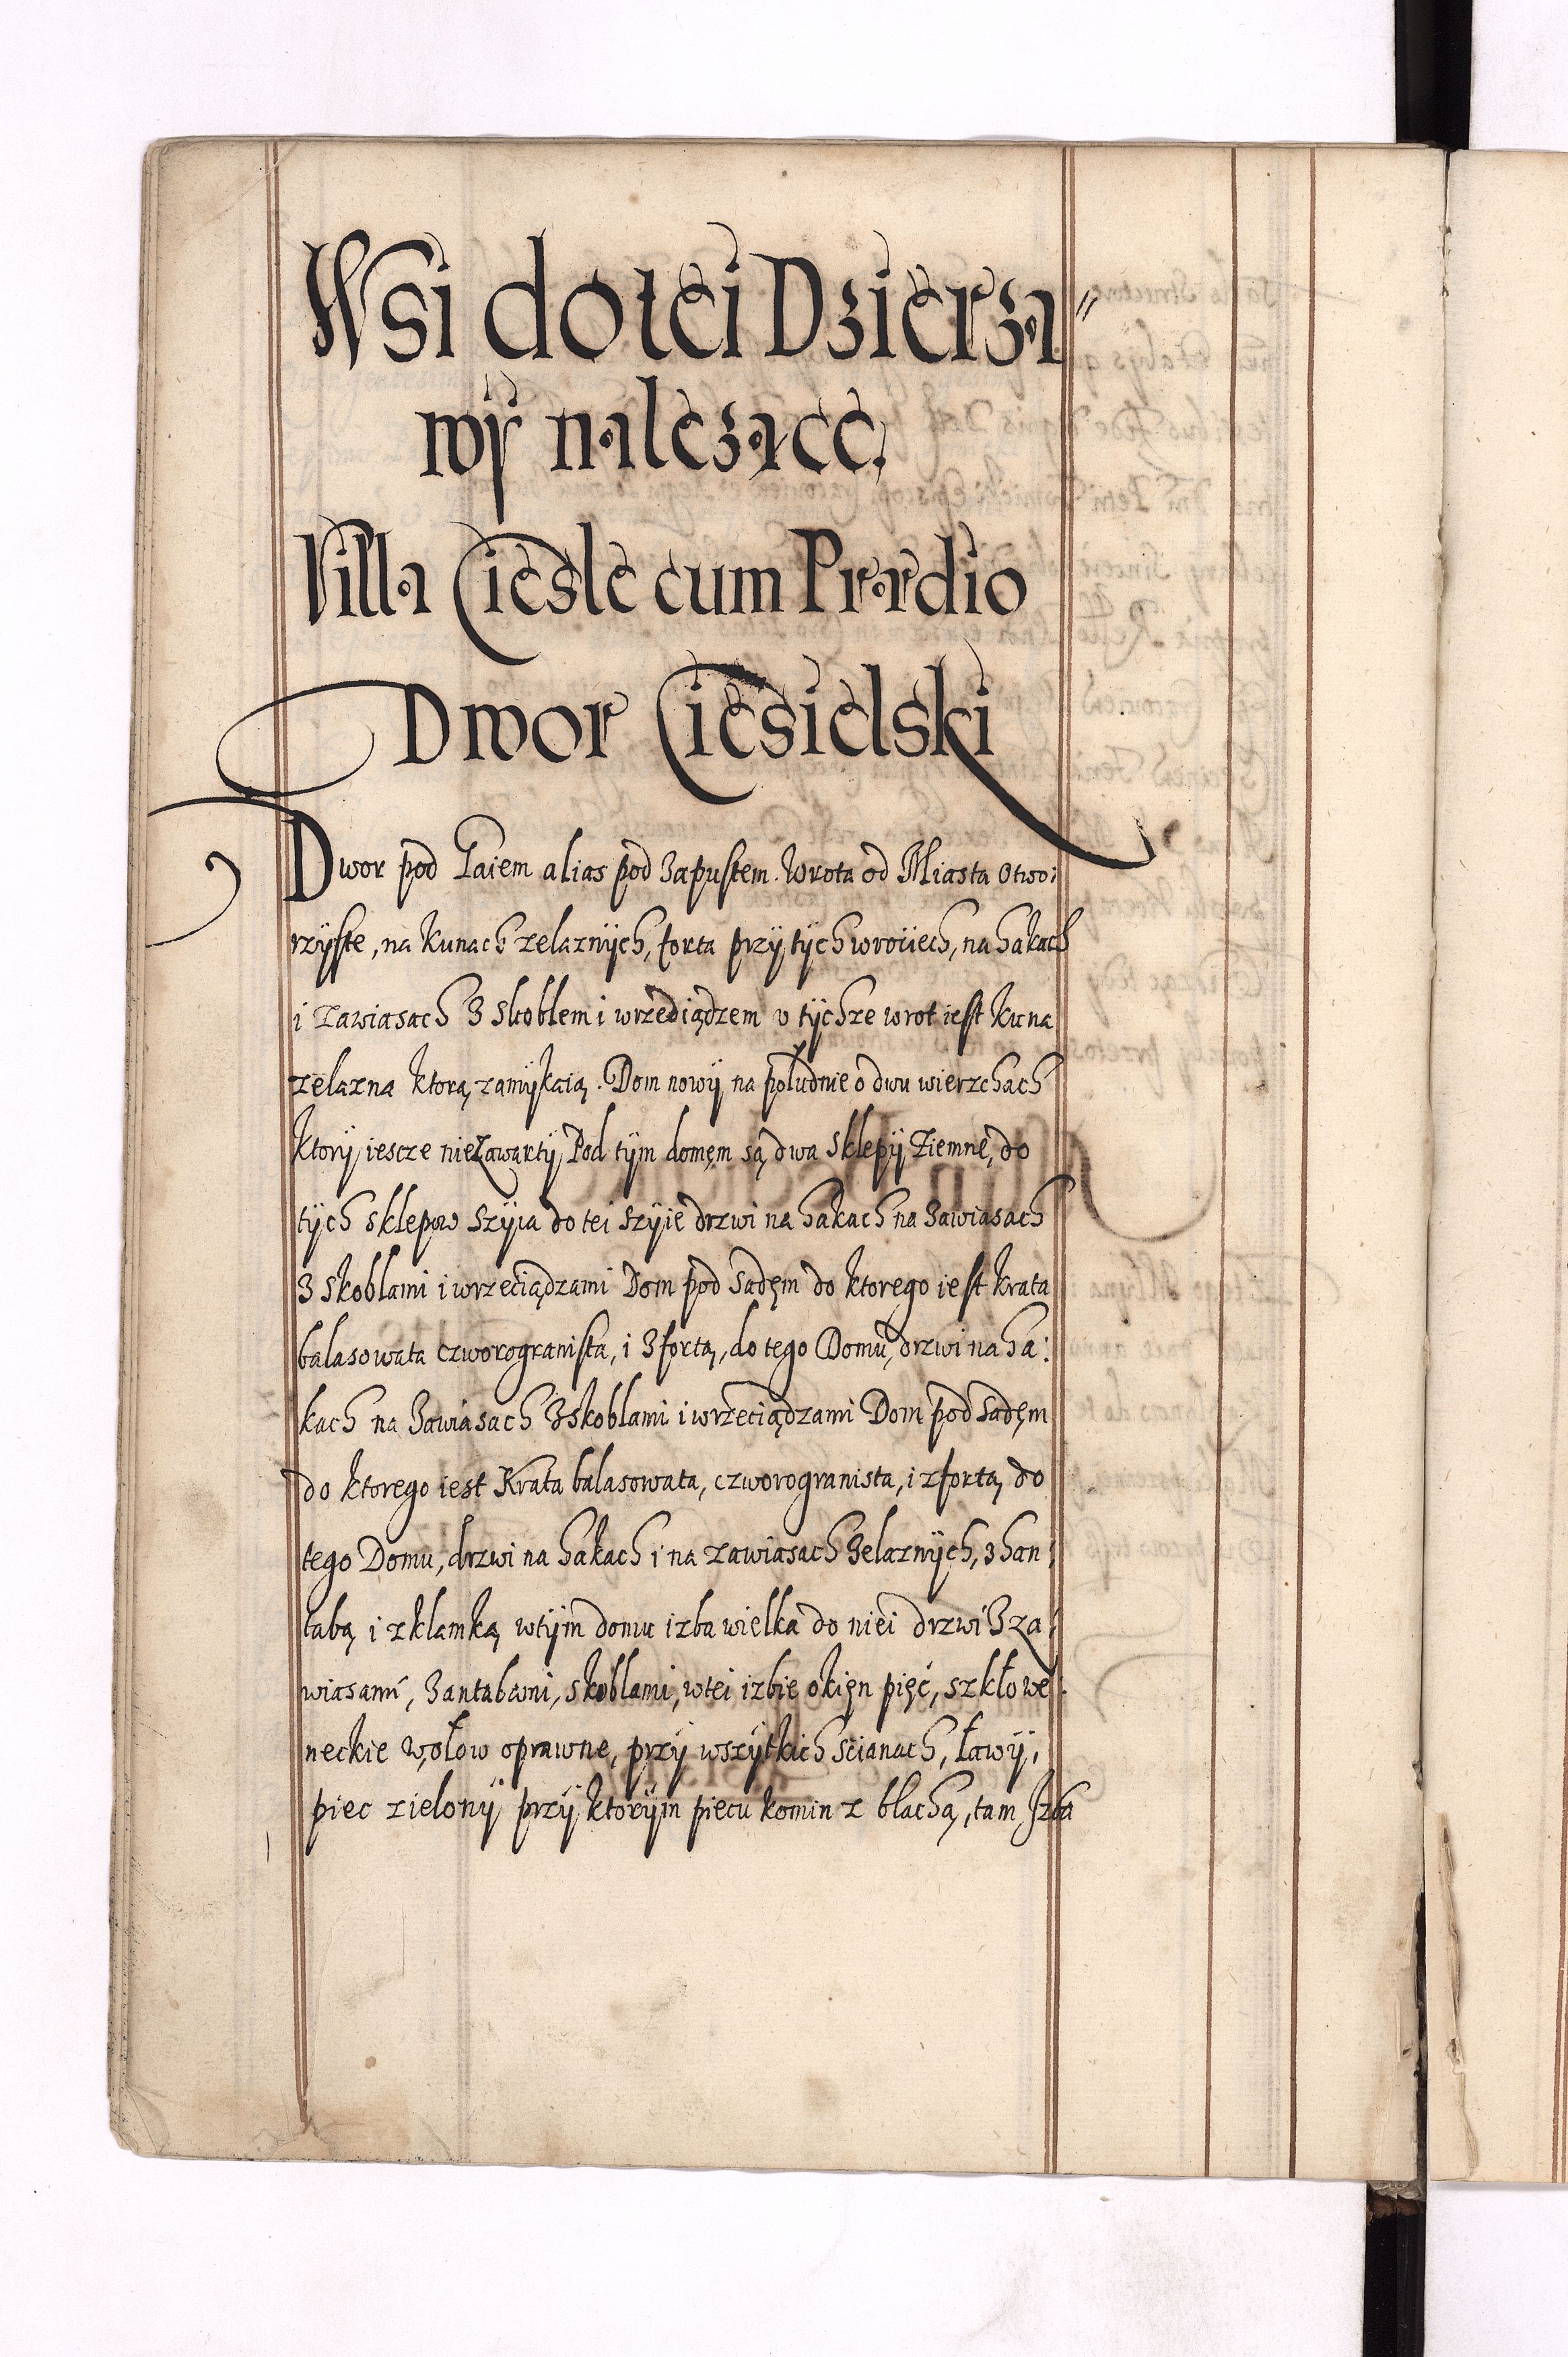 Wsi do tei Dzierza⸗
wÿ nalezące,
Villa Ciesle cum Prædio
Dwor Ciesielski
Dwor pod Gaiem alias pod Zapustem. Wrota od Miasta otwo:
rzÿste, na kunach zelaznÿch, forta przÿ tÿch wrociech, na hakach
i zawiasach Z skoblem i wrzeciądzem v tÿchze wrot iest kuna
zelazna ktorą zamÿkaią. Dom nowÿ na południe o dwu wierzchach
ktorÿ iescze niezawartÿ Pod tÿm domęm są dwa sklepÿ Ziemne, do
tÿch sklepow szÿia do tei szÿie drzwi na hakach na Zawiasach
Z skoblami i wrzeciądzami Dom pod Sadęm do ktorego iest krata
balasowata czworogranista, i Z fortą, do tego Domu, drzwi na ha:
kach na Zawiasach Z skoblami i wrzeciądzami Dom pod Sadęm
do ktorego iest Krata balasowata, czworogranista, i z fortą do
tego Domu, drzwi na hakach i na zawiasach Zelaznÿch, z han:
tabą i z klamką wtÿm domu izba wielka do niei drzwi Z za:
wiasami, Z antabami, skoblami, wtei izbie okięn pięć, szkło we:
neckie w ołow oprawne, przÿ wszÿtkich scianach, ławÿ,
piec zielonÿ przÿ ktorÿm piecu komin z blachą, tam Izba